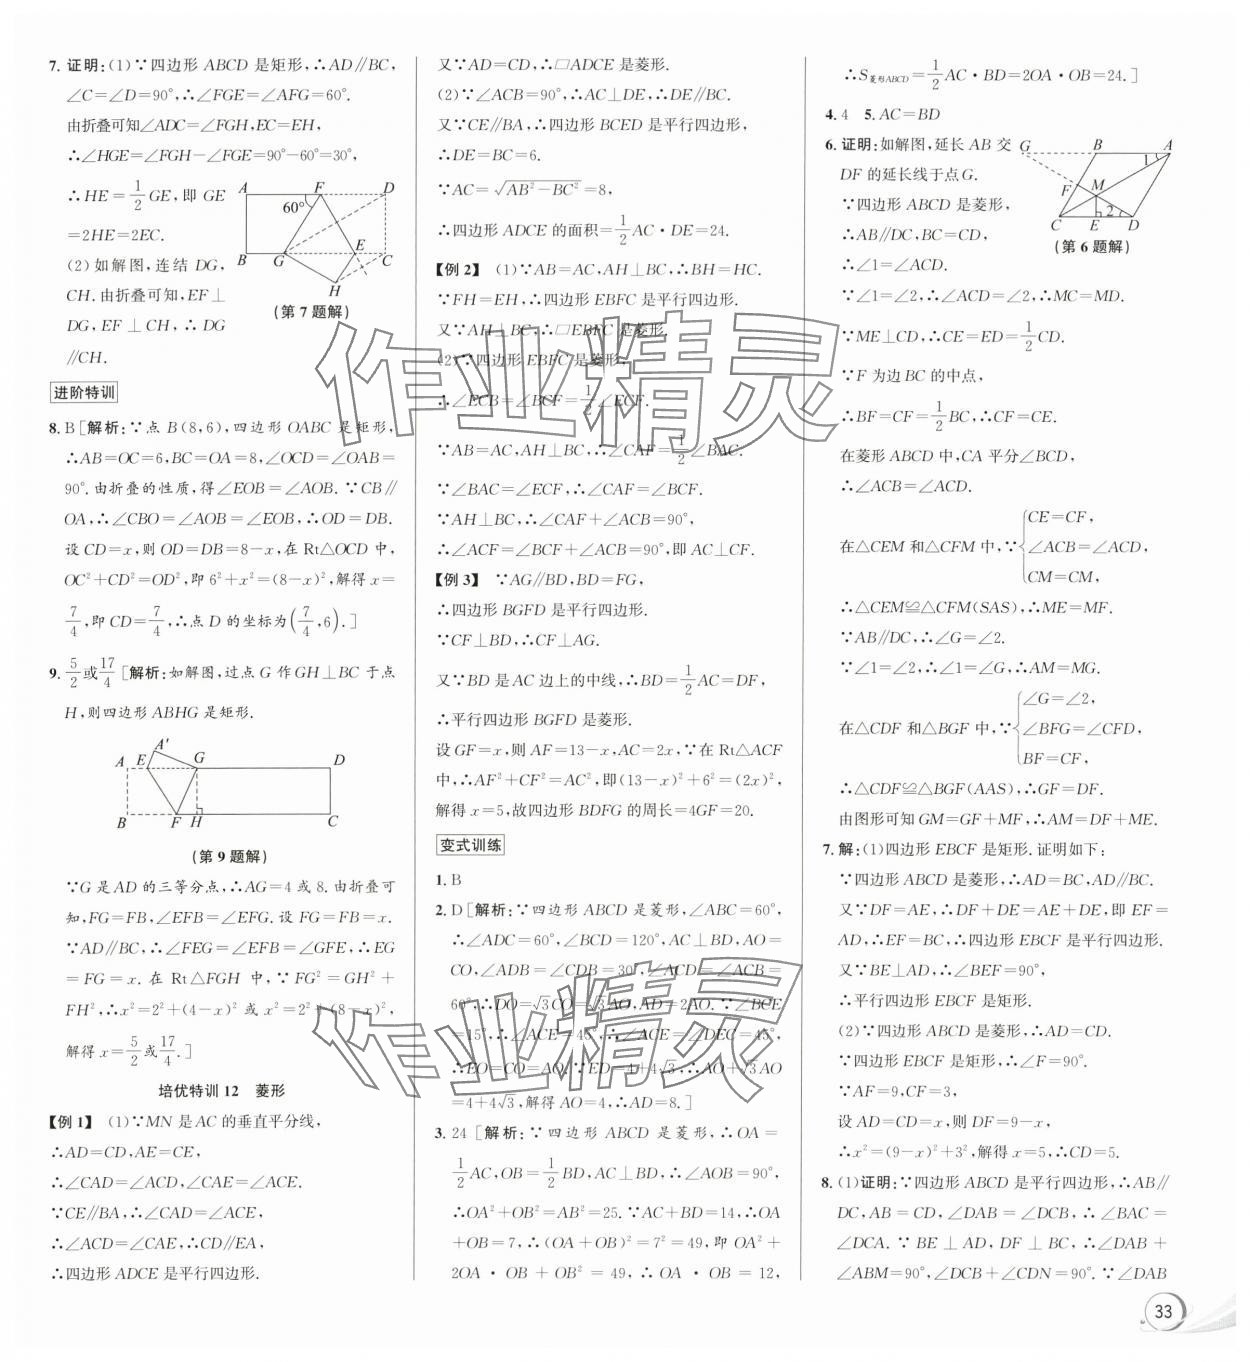 7. 证明:(1)∵四边形 ABCD 是矩形,∴AD∥BC,
∠C=∠D=90°,∴∠FGE=∠AFG=60°.
由折叠可知∠ADC=∠FGH,EC=EH,
∴∠HGE=∠FGH-∠FGE=90°-60°=30°,
∴HE=1/2 GE,即 GE
=2HE=2EC.
(2)如解图,连结 DG,
CH.由折叠可知,EF⊥
DG,EF⊥CH,∴DG
∥CH.
A F D
60°
B G E C
H
(第 7 题解)
进阶特训
8. B [解析:∵点 B(8,6),四边形 OABC 是矩形,
∴AB=OC=6,BC=OA=8,∠OCD=∠OAB=
90°.由折叠的性质,得∠EOB=∠AOB.∵CB∥
OA,∴∠CBO=∠AOB=∠EOB,∴OD=DB.
设 CD=x,则 OD=DB=8-x,在 Rt△OCD 中,
OC²+CD²=OD²,即 6²+x²=(8-x)²,解得 x=
7/4,即 CD=7/4,∴点 D 的坐标为(7/4,6).]
9. 5/2或17/4 [解析:如解图,过点 G 作 GH⊥BC 于点
H,则四边形 ABHG 是矩形.
A′
A E G D
B F H C
(第 9 题解)
∵G 是 AD 的三等分点,∴AG=4 或 8.由折叠可
知,FG=FB,∠EFB=∠EFG.设 FG=FB=x.
∵AD∥BC,∴∠FEG=∠EFB=∠GFE,∴EG
=FG=x.在 Rt△FGH 中,∵FG²=GH²+
FH²,∴x²=2²+(4-x)² 或 x²=2²+(8-x)²,
解得 x=5/2或17/4.]
培优特训 12 菱形
【例 1】 (1)∵MN 是 AC 的垂直平分线,
∴AD=CD,AE=CE,
∴∠CAD=∠ACD,∠CAE=∠ACE.
∵CE∥BA,∴∠CAD=∠ACE,
∴∠ACD=∠CAE,∴CD∥EA,
∴四边形 ADCE 是平行四边形.
又∵AD=CD,∴□ADCE 是菱形.
(2)∵∠ACB=90°,∴AC⊥DE,∴DE∥BC.
又∵CE∥BA,∴四边形 BCED 是平行四边形,
∴DE=BC=6.
∵AC=√(AB²-BC²)=8,
∴四边形 ADCE 的面积=1/2 AC·DE=24.
【例 2】 (1)∵AB=AC,AH⊥BC,∴BH=HC.
∵FH=EH,∴四边形 EBFC 是平行四边形.
又∵AH⊥BC,∴□EBFC 是菱形.
(2)∵四边形 EBFC 是菱形,
∴∠ECB=∠BCF=1/2∠ECF.
∵AB=AC,AH⊥BC,∴∠CAF=1/2∠BAC.
∵∠BAC=∠ECF,∴∠CAF=∠BCF.
∵AH⊥BC,∴∠CAF+∠ACB=90°,
∴∠ACF=∠BCF+∠ACB=90°,即 AC⊥CF.
【例 3】 ∵AG∥BD,BD=FG,
∴四边形 BGFD 是平行四边形.
∵CF⊥BD,∴CF⊥AG.
又∵BD 是 AC 边上的中线,∴BD=1/2 AC=DF,
∴平行四边形 BGFD 是菱形.
设 GF=x,则 AF=13-x,AC=2x,∵在 Rt△ACF
中,∴AF²+CF²=AC²,即(13-x)²+6²=(2x)²,
解得 x=5,故四边形 BDFG 的周长=4GF=20.
变式训练
1. B
2. D [解析:∵四边形 ABCD 是菱形,∠ABC=60°,
∴∠ADC=60°,∠BCD=120°,AC⊥BD,AO=
CO,∠ADB=∠CDB=30°,∠ACD=∠ACB=
60°,∴DO=√3CO=√3AO,AD=2AO.∵∠BCE
=15°,∴∠ACE=45°,∴∠ACE=∠DEC=45°,
∴EO=CO=AO.∵ED=4+4√3,∴AO+√3AO
=4+4√3,解得 AO=4,∴AD=8.]
3. 24 [解析:∵四边形 ABCD 是菱形,∴OA=
1/2 AC,OB=1/2 BD,AC⊥BD,∴∠AOB=90°,
∴OA²+OB²=AB²=25.∵AC+BD=14,∴OA
+OB=7,∴(OA+OB)²=7²=49,即 OA²+
2OA·OB+OB²=49,∴OA·OB=12,
∴S菱形ABCD=1/2 AC·BD=2OA·OB=24.]
4. 4 5. AC=BD
6. 证明:如解图,延长 AB 交
DF 的延长线于点 G.
∵四边形 ABCD 是菱形,
∴AB∥DC,BC=CD,
∴∠1=∠ACD.
G B A
1
F M
2
C E D
(第 6 题解)
∵∠1=∠2,∴∠ACD=∠2,∴MC=MD.
∵ME⊥CD,∴CE=ED=1/2 CD.
∵F 为边 BC 的中点,
∴BF=CF=1/2 BC,∴CF=CE.
在菱形 ABCD 中,CA 平分∠BCD,
∴∠ACB=∠ACD.
在△CEM 和△CFM 中,∵{CE=CF,
∠ACB=∠ACD,
CM=CM,
∴△CEM≌△CFM(SAS),∴ME=MF.
∵AB∥DC,∴∠G=∠2.
∵∠1=∠2,∴∠1=∠G,∴AM=MG.
在△CDF 和△BGF 中,∵{∠G=∠2,
∠BFG=∠CFD,
BF=CF,
∴△CDF≌△BGF(AAS),∴GF=DF.
由图形可知 GM=GF+MF,∴AM=DF+ME.
7. 解:(1)四边形 EBCF 是矩形.证明如下:
∵四边形 ABCD 是菱形,∴AD=BC,AD∥BC.
又∵DF=AE,∴DF+DE=AE+DE,即 EF=
AD,∴EF=BC,∴四边形 EBCF 是平行四边形.
又∵BE⊥AD,∴∠BEF=90°,
∴平行四边形 EBCF 是矩形.
(2)∵四边形 ABCD 是菱形,∴AD=CD.
∵四边形 EBCF 是矩形,∴∠F=90°.
∵AF=9,CF=3,
设 AD=CD=x,则 DF=9-x,
∴x²=(9-x)²+3²,解得 x=5,∴CD=5.
8. (1)证明:∵四边形 ABCD 是平行四边形,∴AB∥
DC,AB=CD,∠DAB=∠DCB,∴∠BAC=
∠DCA.∵BE⊥AD,DF⊥BC,∴∠DAB+
∠ABM=90°,∠DCB+∠CDN=90°.∵∠DAB
作业精灵
作业精灵
33